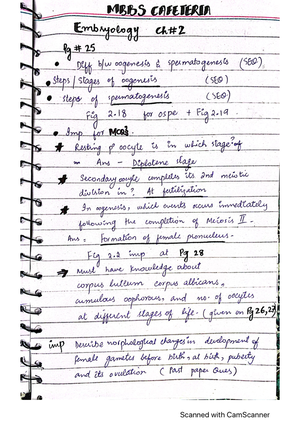 MBBS CAFETERIA
Embryology Ch#2
Pg # 25
• Diff b/w oogenesis & spermatogenesis (SEQ).
• Steps / Stages of oogenesis (SEQ)
• steps of spermatogenesis (SEQ)
Fig 2.18 for ospe + Fig 2.19.
• Imp for MCQs
* Resting 1° oocyte is in which stage?
Ans - Diplotene stage
* Secondary oocyte completes its 2nd meiotic
division in? At fertilization
* In oogenesis, which events occurs immediately
following the completion of Meiosis II.
Ans: Formation of female pronucleus.
Fig 2.2 imp at Pg 28
→ Must have knowledge about
corpus luteum corpus albicans,
cumulous oophorous, and no. of oocytes
at different stages of life. (given on Pg 26,27)
imp Describe morphological changes in development of
female gametes before birth, at birth, puberty
and its ovulation (Past paper Ques)
Scanned with CamScanner